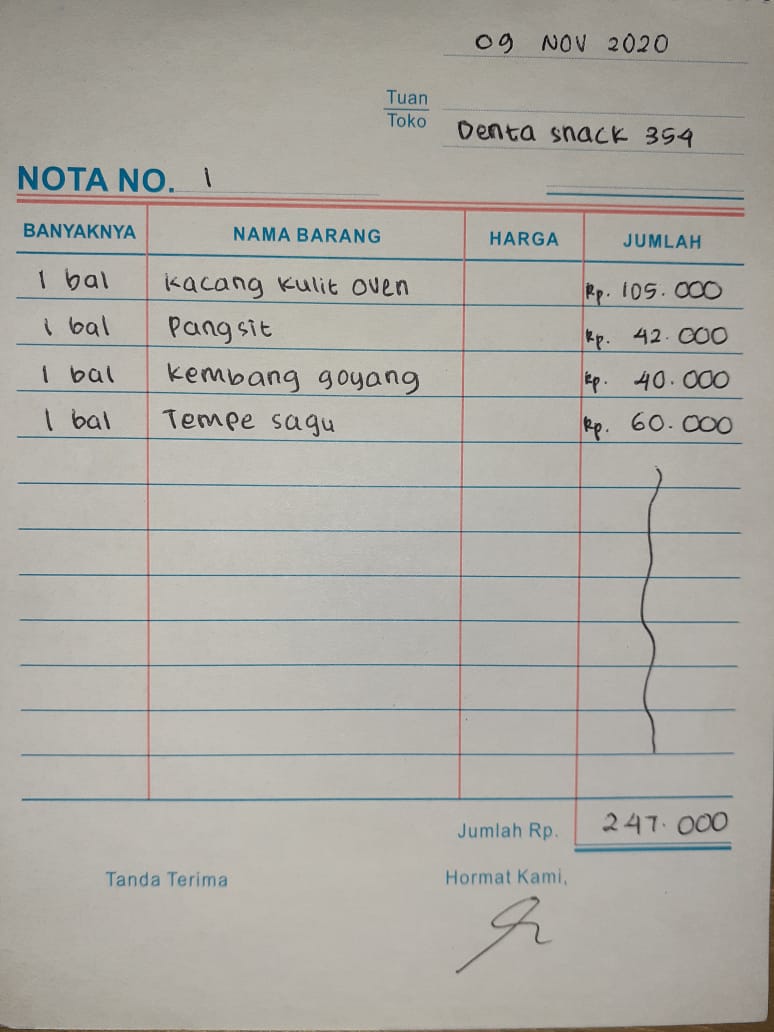 09 NOV 2020
Tuan
Toko
Denta snack 354
NOTA NO. 1
BANYAKNYA NAMA BARANG HARGA JUMLAH
1 bal Kacang Kulit oven Rp. 105.000
1 bal Pangsit Rp. 42.000
1 bal Kembang goyang Rp. 40.000
1 bal Tempe sagu Rp. 60.000
Jumlah Rp. 247.000
Tanda Terima Hormat Kami,